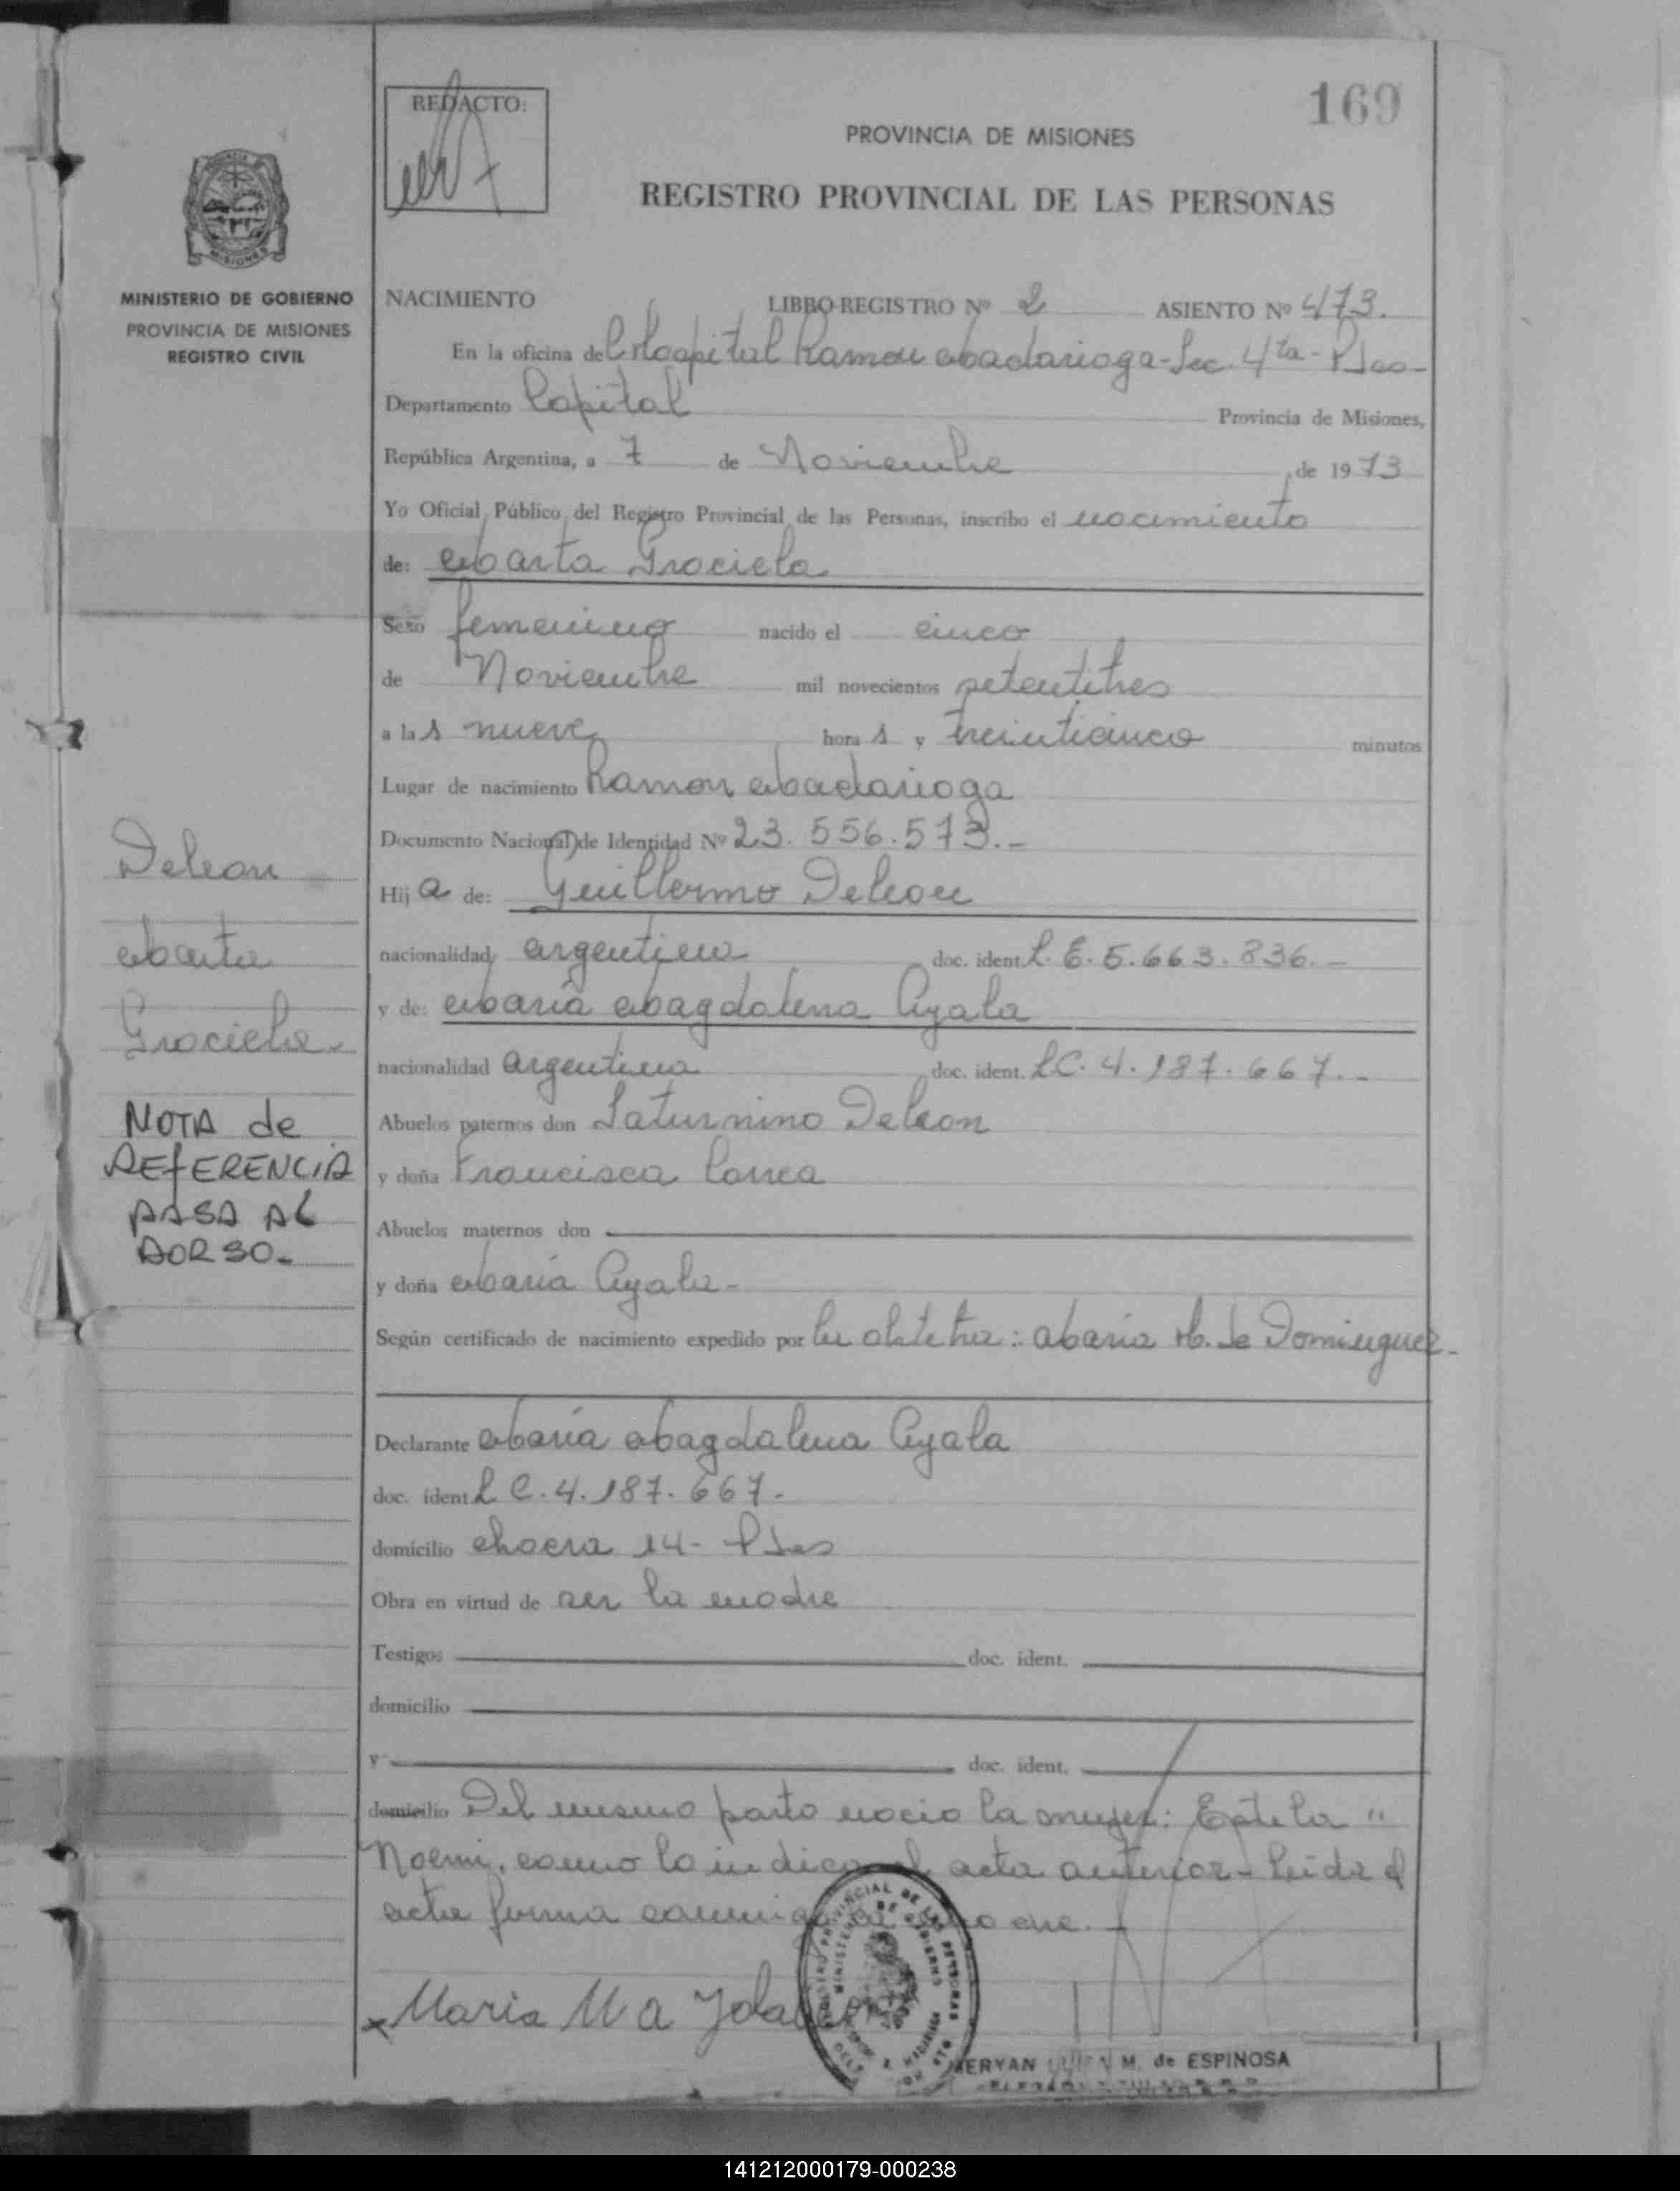 169
REDACTO:
PROVINCIA DE MISIONES
REGISTRO PROVINCIAL DE LAS PERSONAS
MINISTERIO DE GOBIERNO
PROVINCIA DE MISIONES
REGISTRO CIVIL
NACIMIENTO LIBRO-REGISTRO Nº 2 ASIENTO Nº 473.
En la oficina del Hospital Ramon Madariaga - Sec. 4ta - Pdas -
Departamento Capital Provincia de Misiones,
República Argentina, a 7 de Noviembre de 1973
Yo Oficial Público del Registro Provincial de las Personas, inscribo el nacimiento
de: Marta Graciela
Sexo femenino nacido el cinco
de Noviembre mil novecientos setentitres
a las nueve horas y treinticinco minutos
Lugar de nacimiento Ramon Madariaga
Documento Nacional de Identidad Nº 23.556.573.-
Hija de: Guillermo Deleon
nacionalidad argentina doc. ident. L.E. 5.663.836.-
y de: Maria Magdalena Ayala
nacionalidad argentina doc. ident. LC. 4.187.667.-
Abuelos paternos don Saturnino Deleon
y doña Francisca Correa
Abuelos maternos don
y doña Maria Ayala -
Según certificado de nacimiento expedido por la obstetra: Maria H. de Dominguez -
Declarante Maria Magdalena Ayala
doc. ident. LC. 4.187.667.
domicilio chacra 14 - Pdas
Obra en virtud de ser la madre
Testigos doc. ident.
domicilio
y doc. ident.
domicilio Del mismo parto nacio la mujer: Estela "
Noemi, como lo indica el acta anterior - Leida el
acta firma conmigo
Maria M A
M. de ESPINOSA
Deleon
Marta
Graciela
NOTA de
REFERENCIA
PASA AL
DORSO.
141212000179-000238